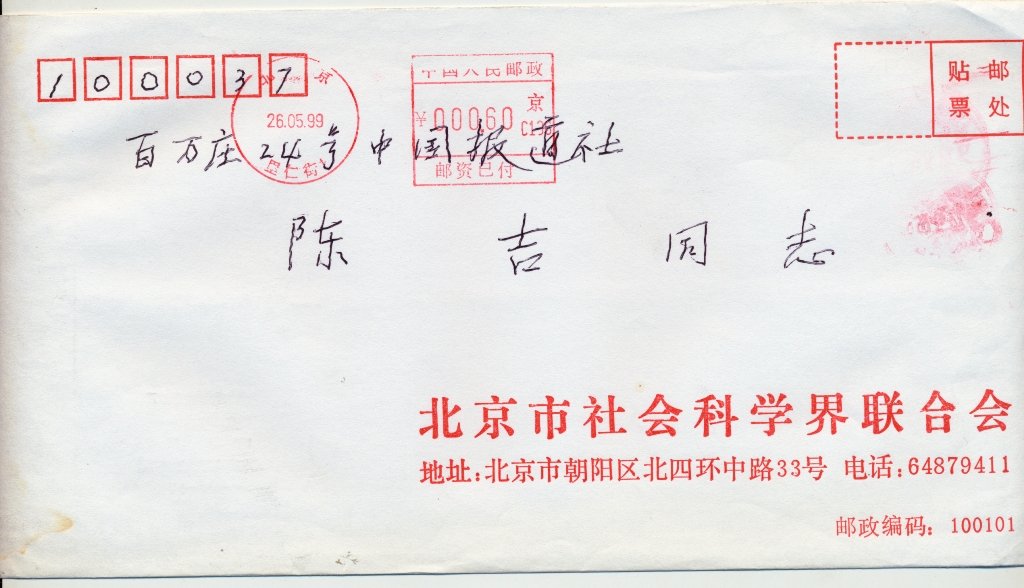 100037
京
26.05.99
中国人民邮政
京
¥00060
邮资已付
贴 邮
票 处
百万庄24号中国报道社
陈吉同志
北京市社会科学界联合会
地址:北京市朝阳区北四环中路33号 电话:64879411
邮政编码: 100101